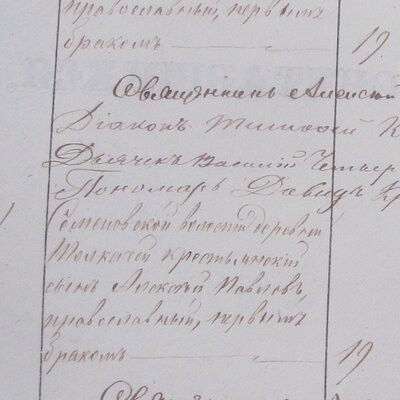 православный, первымъ
бракомъ 19
Священникъ Алексій
Діаконъ Тимофей К
Дьячекъ Василій Четвер
Пономарь Давидъ
Семеновской волости деревни
Толкачей крестьянскій
сынъ Алексѣй Павловъ,
православный, первымъ
бракомъ 19.
Священникъ